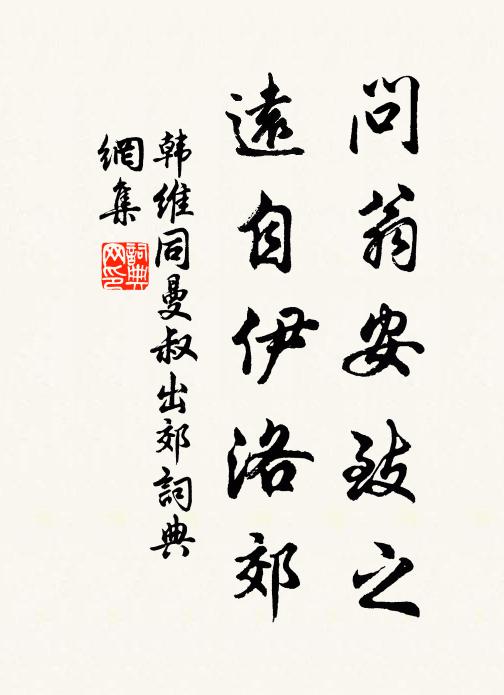 問翁安致之
遠自伊洛郊
韩維同曼叔出郊詞典
網集
詞典網印